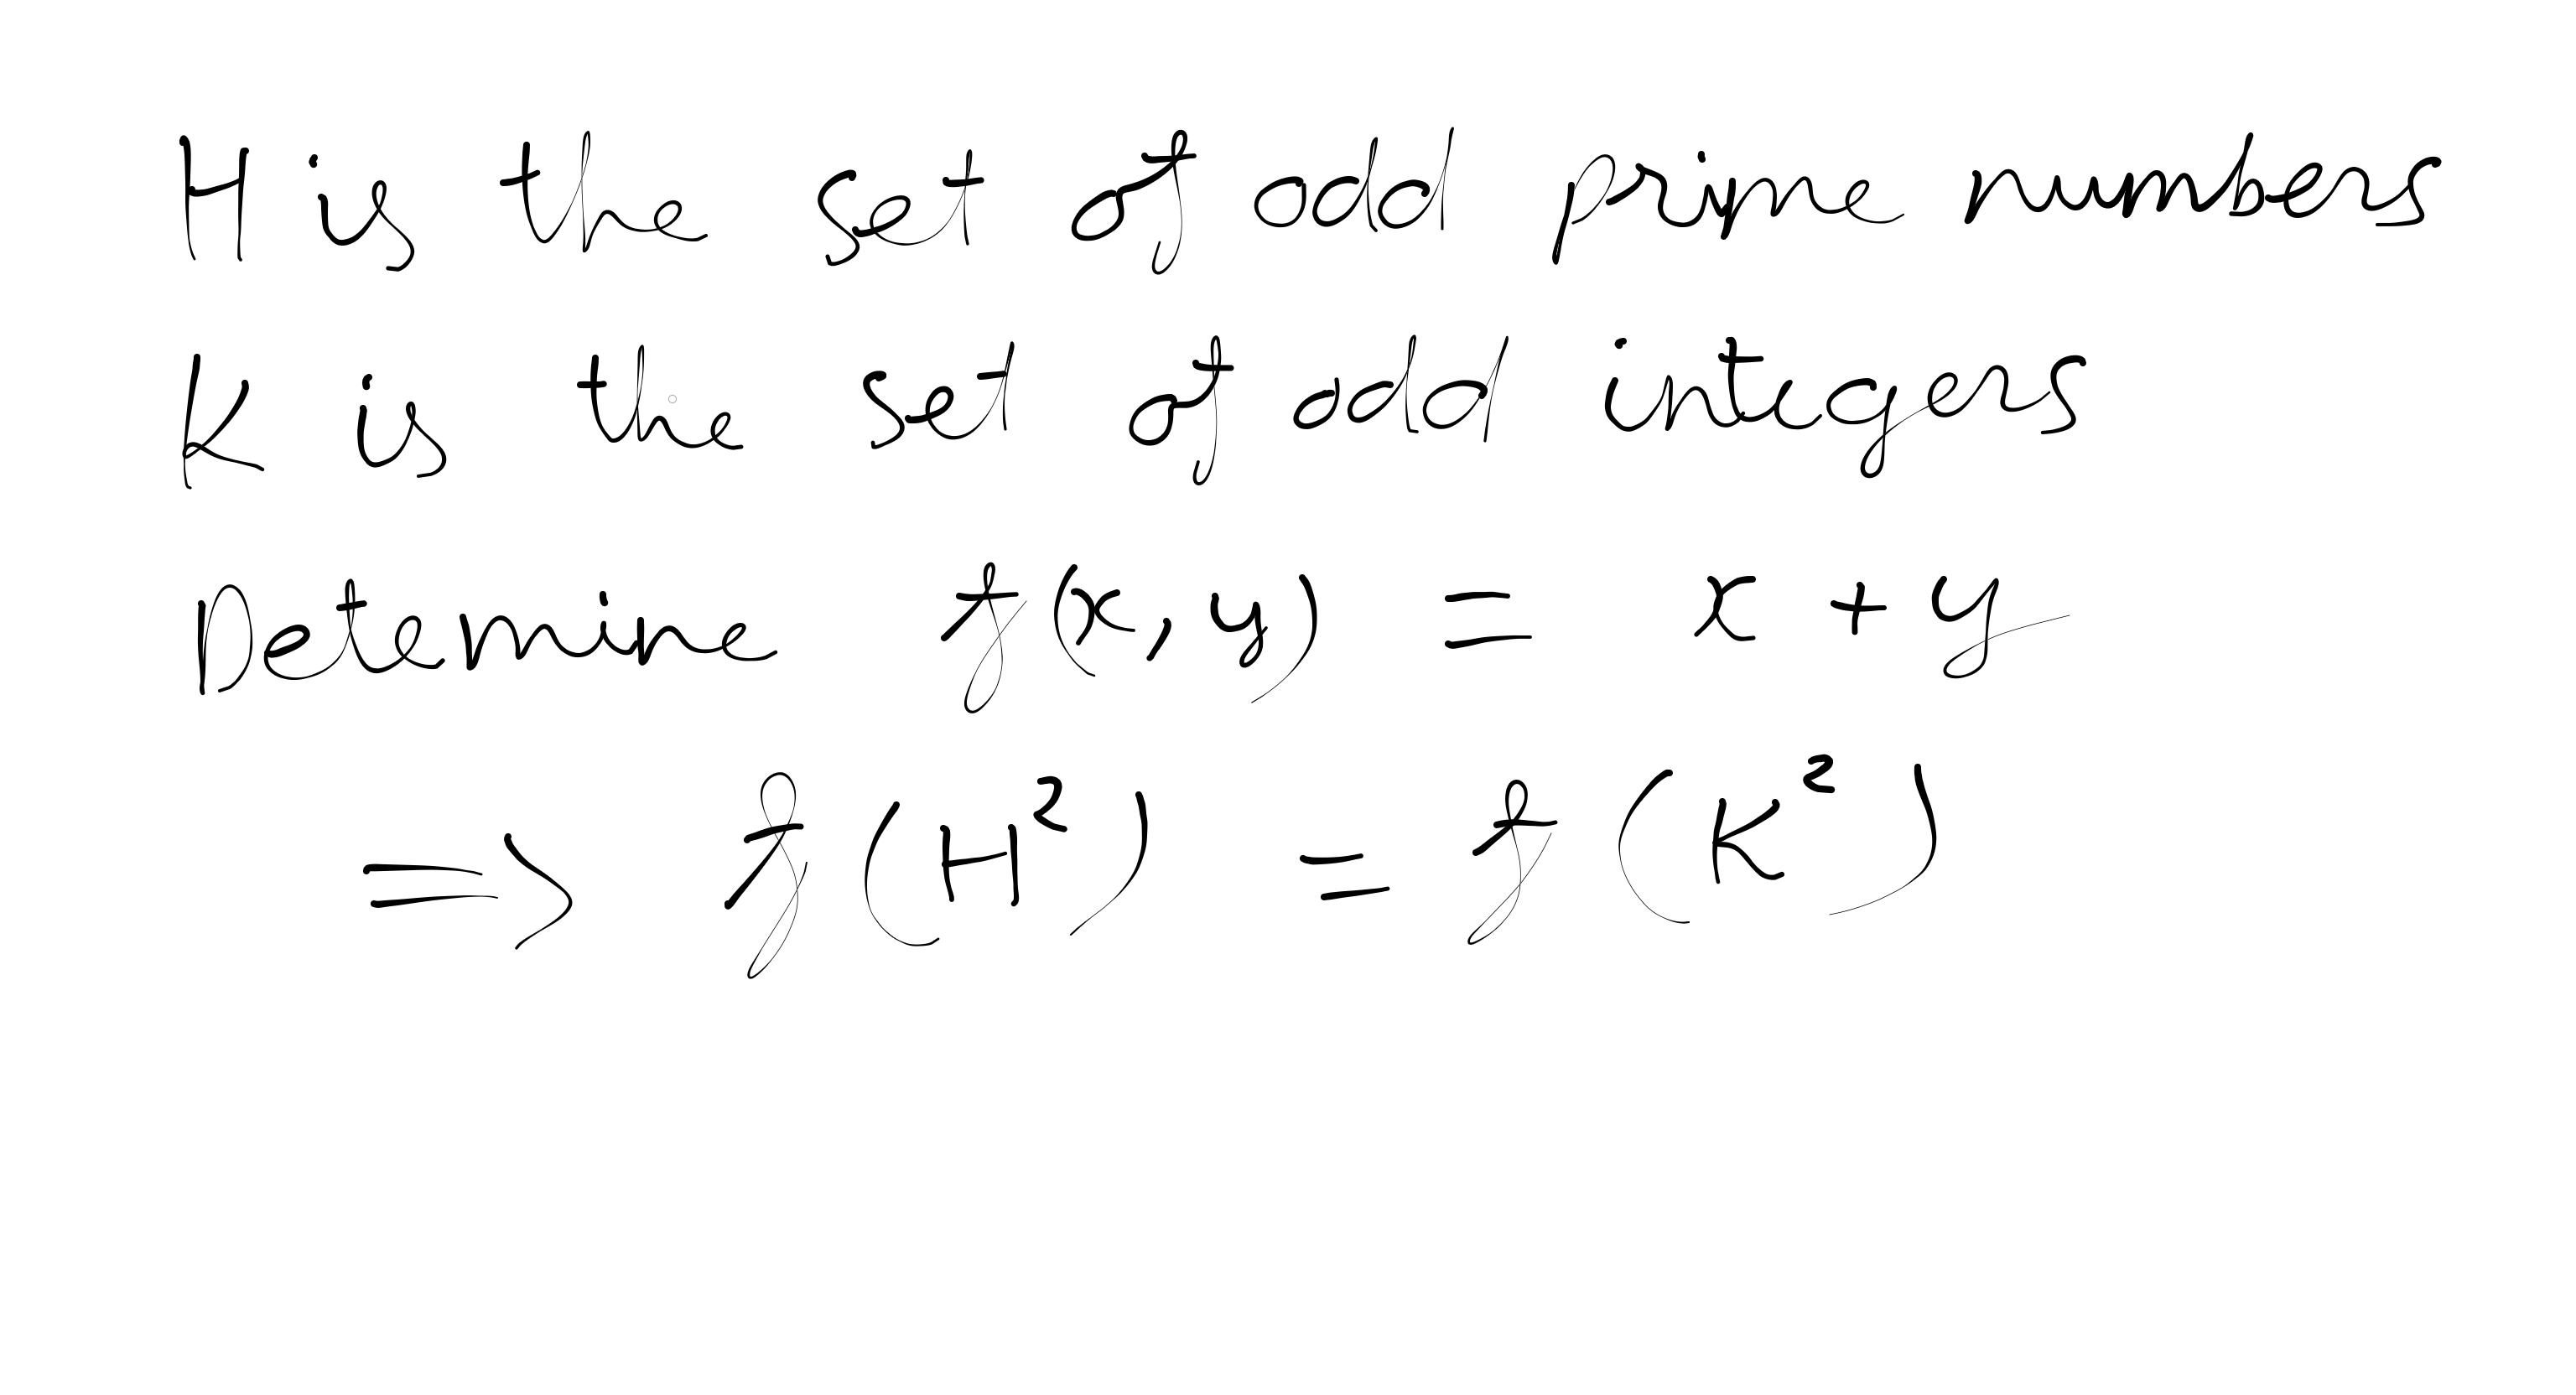 H is the set of odd prime numbers
K is the set of odd integers
Detemine f(x, y) = x + y
=> f(H²) = f(K²)